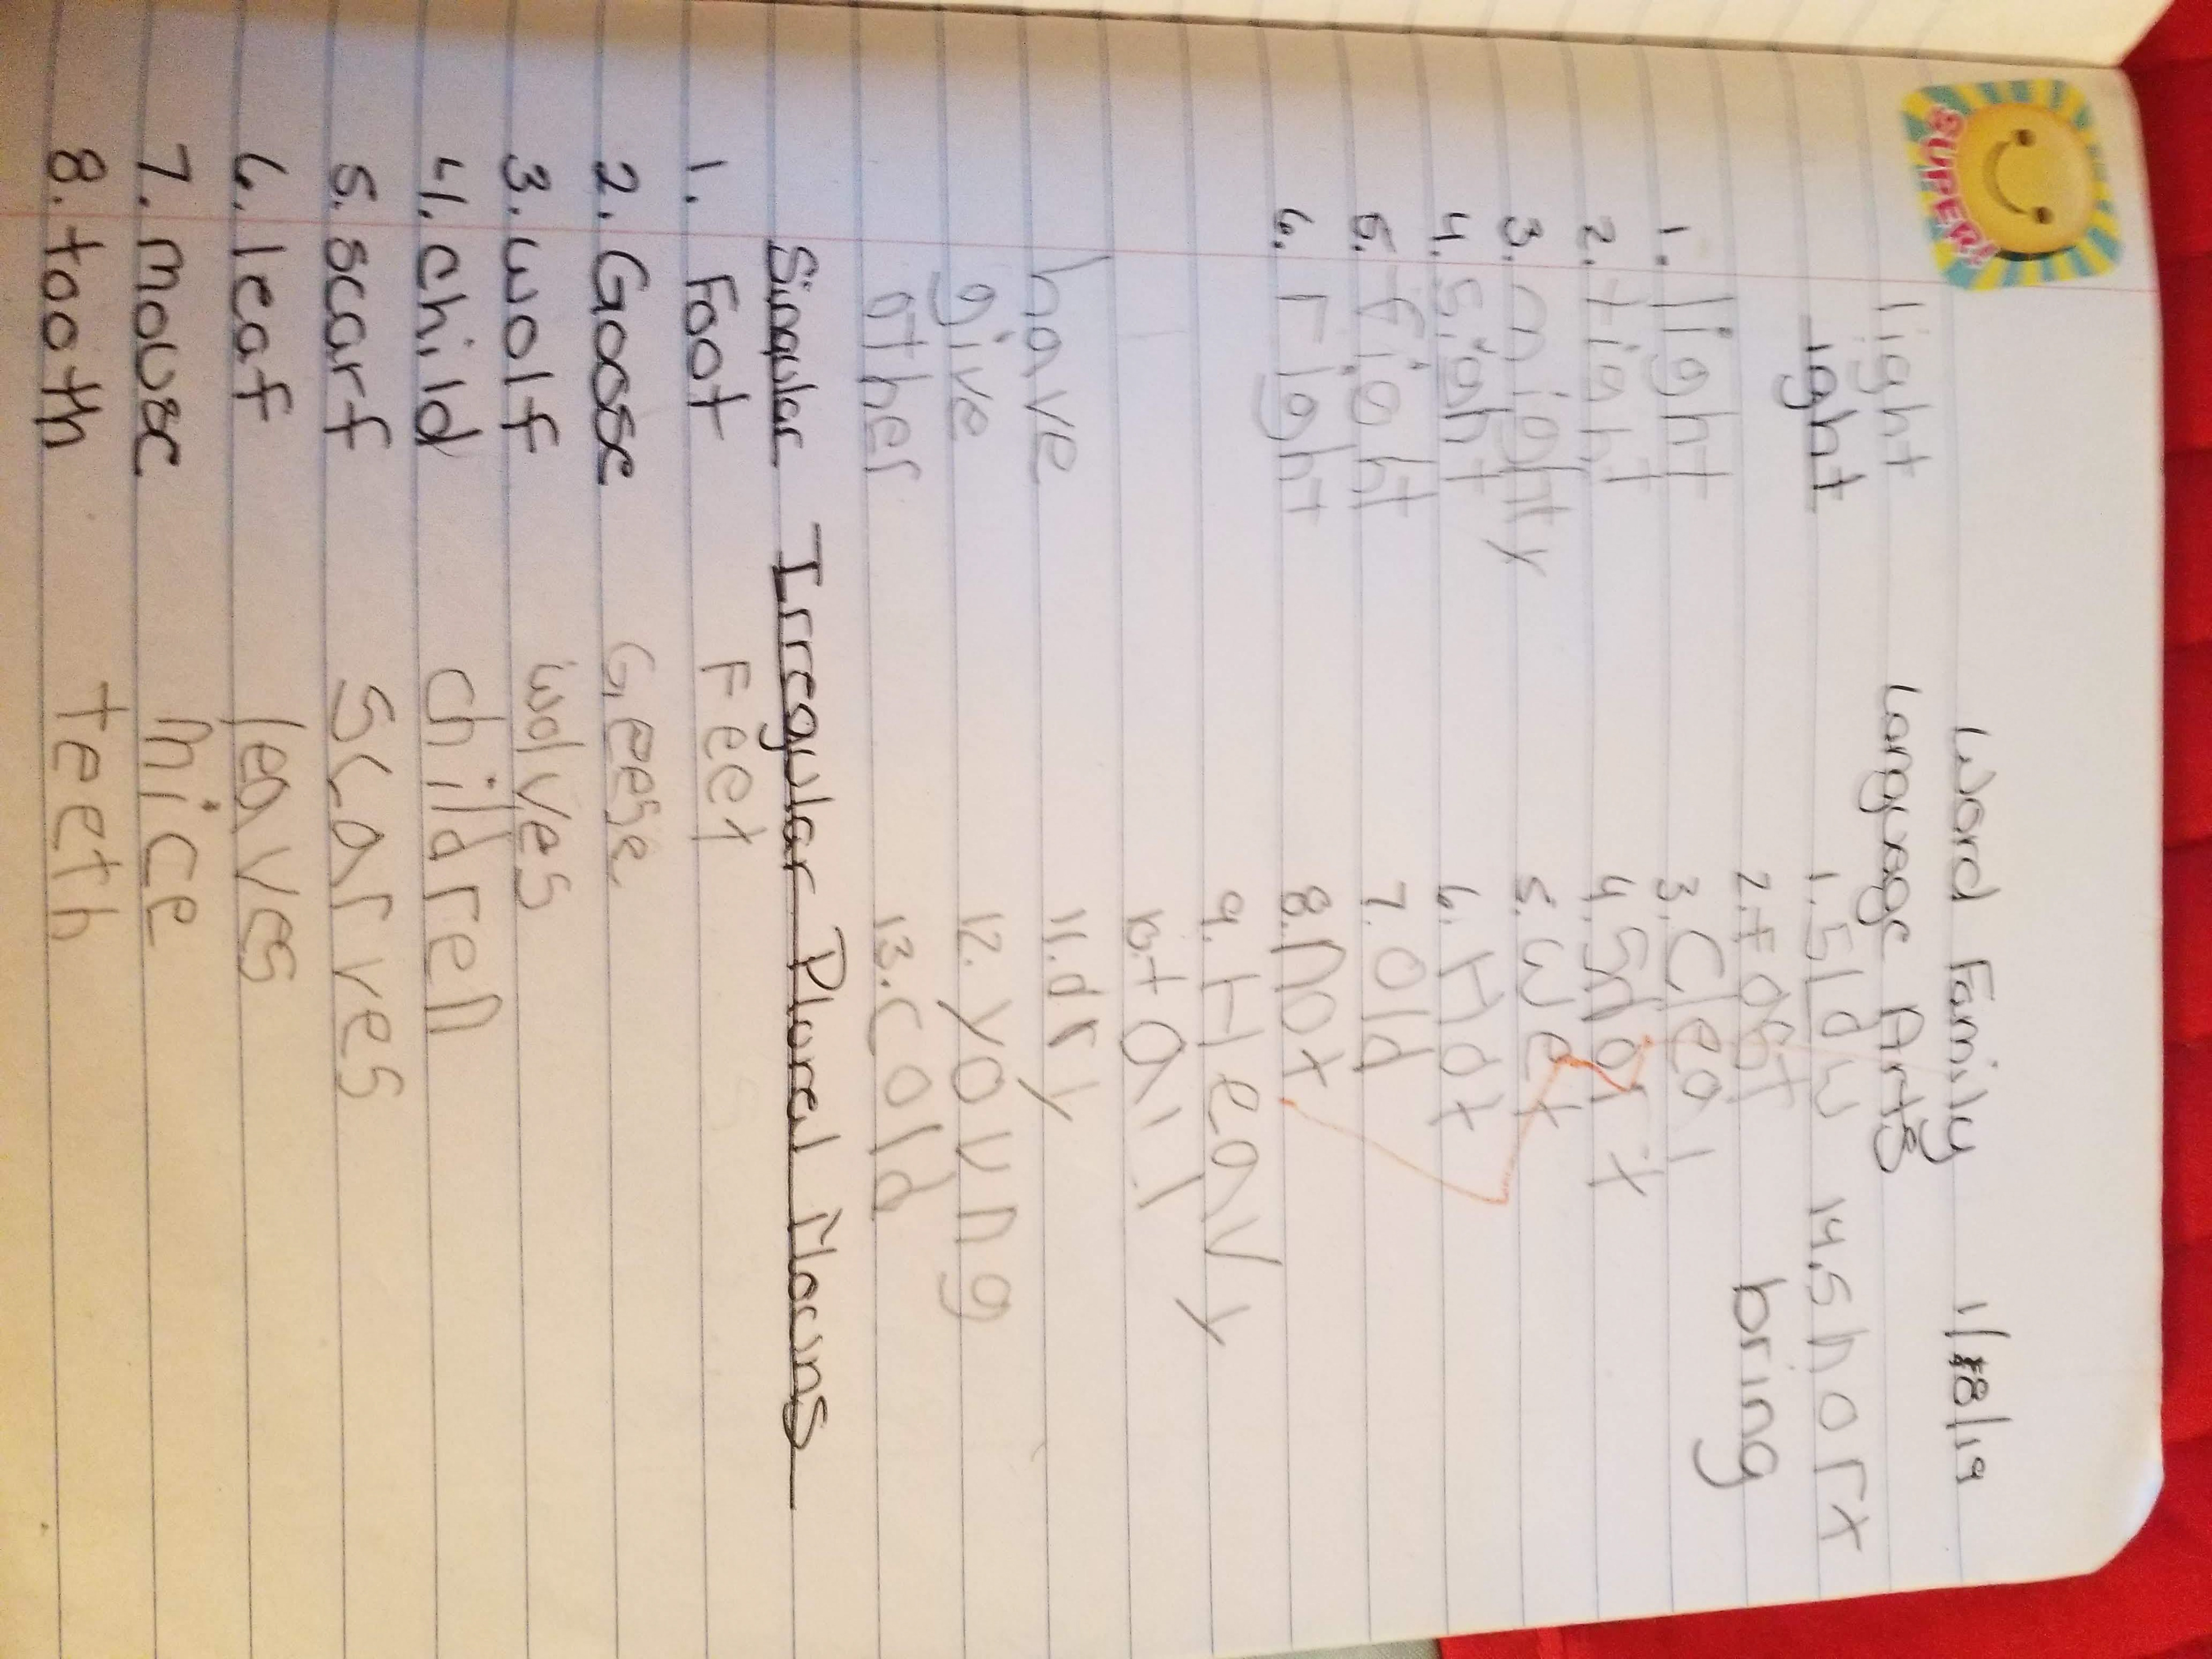 SUPER!
Word Family 1/18/19
light Language Arts
ight 1. slow 14. short
2. Fast bring
1. light 3.
2. tight 4. Short
3. mighty 5. wet
4. sight 6. Hot
5. Fight 7. Old
6. right 8. not
9. Heavy
10. tall
have 11. dry
give 12. young
other 13. cold
Singular Irregular Plural Nouns
1. Foot Feet
2. Goose Geese
3. wolf wolves
4. child children
5. scarf scarves
6. leaf leaves
7. mouse mice
8. tooth teeth